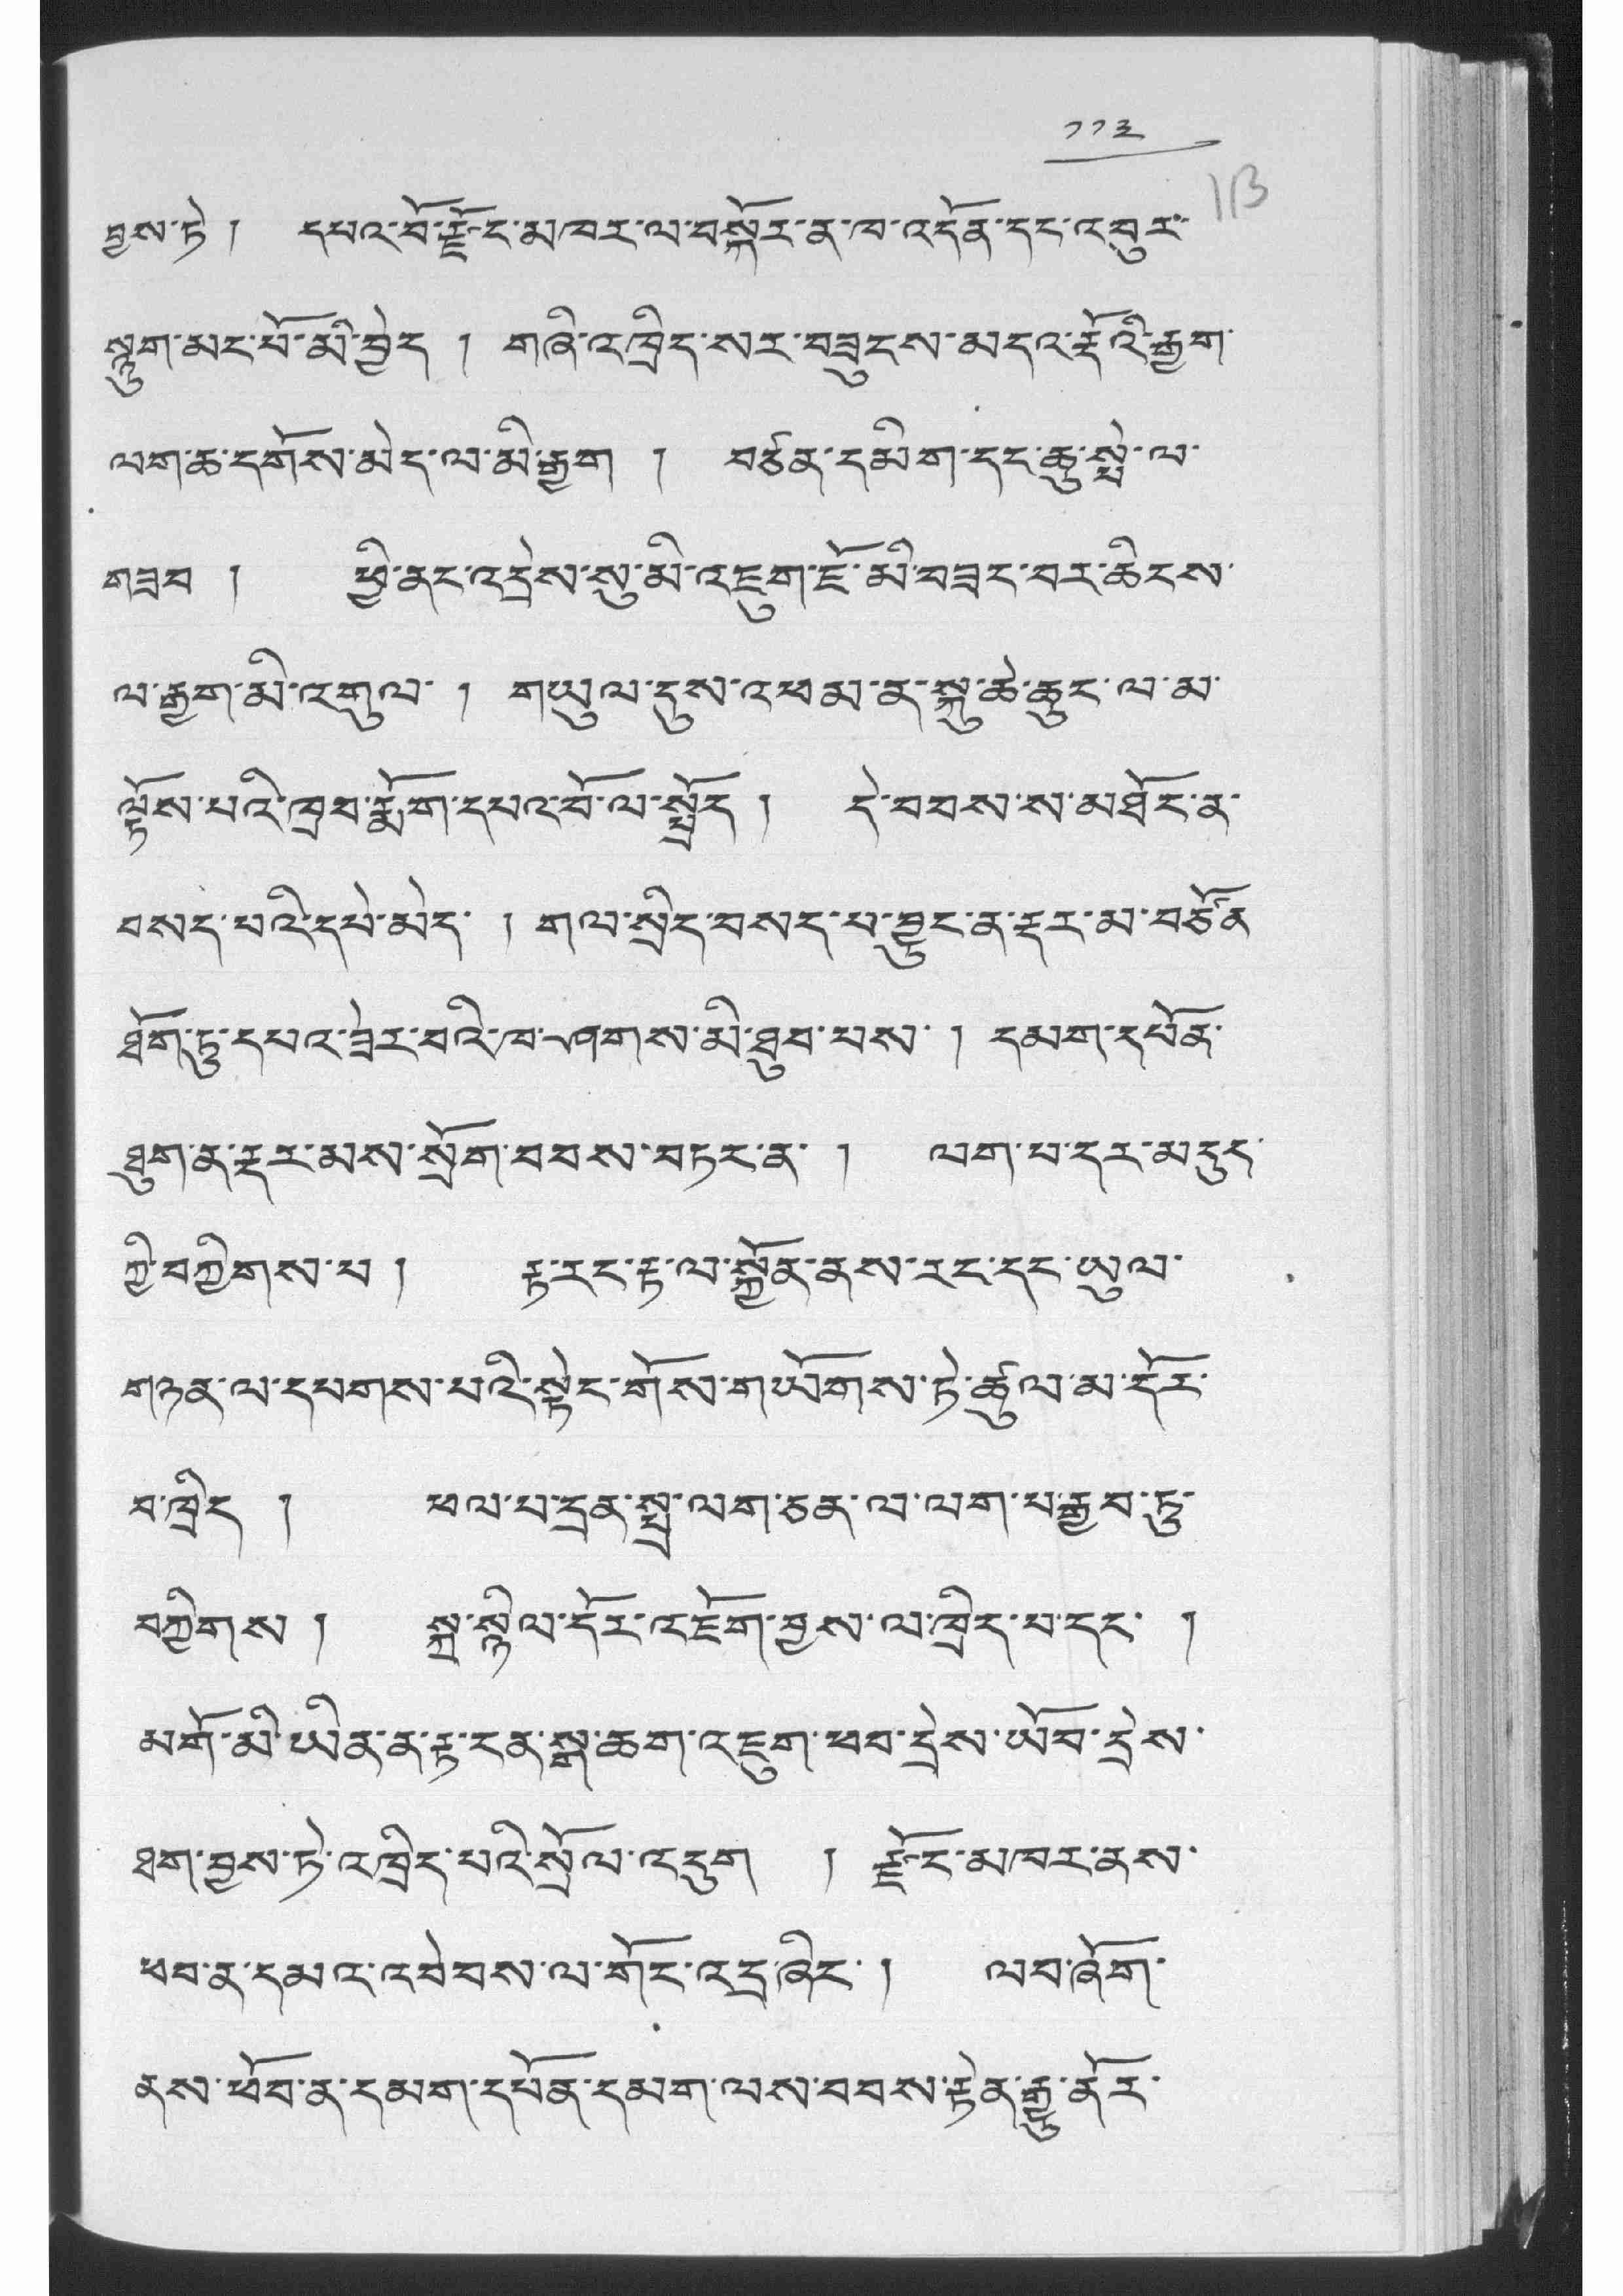 ༡༡༣
113
བྱས་ཏེ། དཔའ་བོ་རྫོང་མཁར་ལ་བསྐོར་ན་ཁ་འདོན་དང་འབུར་
སྟུག་མང་པོ་མི་བྱེད། གཞི་འཁྲིད་སར་བཟུངས་མདའ་རྡོའི་རྒྱག་
ལག་ཆ་དགོས་མེད་ལ་མི་རྒྱག། བཙན་དམིག་དང་ཆུ་སྣེ་ལ་
གཟབ། ཕྱི་ནང་འདྲེས་སུ་མི་འཇུག་ངོ་མི་བཟང་བར་ཆིངས་
ལ་རྒྱག་མི་འགུལ། གཡུལ་དུས་འཕམ་ན་སྐུ་ཆེ་ཆུང་ལ་མ་
ལྟོས་པའི་ཁྲབ་རྨོག་དཔའ་བོ་ལ་སྤྲོད། དེ་བབས་ས་མཐོང་ན་
བསད་པའི་དཔེ་མེད། གལ་སྲིད་བསད་པ་བྱུང་ན་རྡར་མ་བཙོན་
ཐོག་ཏུ་དཔའ་ཟེར་བའི་ཁ་ཤགས་མི་ཐུབ་པས། དམག་དཔོན་
ཐུག་ན་རྡར་མས་སྲོག་བབས་བཏང་ན། ལག་པ་དར་མདུད་
ཀྱི་བཀྱིགས་པ། རྟ་རང་རྟ་ལ་སྐྱོན་ནས་རང་དང་ཡུལ་
གཉན་ལ་དཔགས་པའི་སྟེང་གོས་གཡོགས་ཏེ་ཚུལ་མ་དོར་
བ་ཁྲིད། ཕལ་པ་དྲན་སྤྲ་ལག་ཅན་ལ་ལག་པ་རྒྱབ་ཏུ་
བཀྱིགས། སྐྲ་སྟིལ་དོར་འཇོག་བྱས་ལ་ཁྲིད་པ་དང་།
མགོ་མི་ཡིན་ན་རྟ་ངན་སྒ་ཆག་འཇུག་ཕབ་དྲེས་ཡོབ་དྲེས་
ཐག་བྱས་ཏེ་འཁྲིད་པའི་སྲོལ་འདུག། རྫོང་མཁར་ནས་
ཕབ་ན་དམར་འབེབས་ལ་གོང་འདྲ་ཞིང་། ལབ་ཞོག་
ནས་ཕོབ་ན་དམག་དཔོན་དམག་ལས་བབས་རྟེན་རྒྱུ་ནོར་